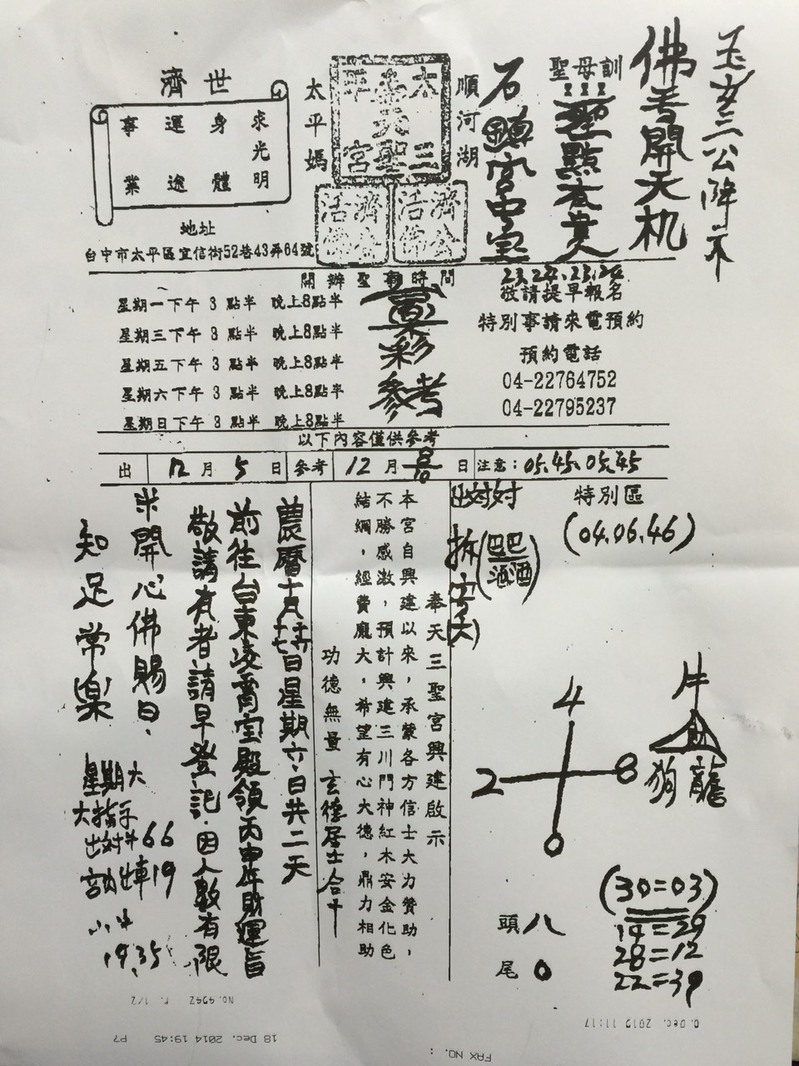 玉女三公降示
佛音開天机
聖母訓
聖點有貴人
石鎮宮中宝
順河湖
太三
奉天聖
平宮
濟公活佛
濟公活佛
太平媽
濟世
求光明
身體
運途
事業
地址
台中市太平區宜信街52巷43弄64號
開辦聖事時間
星期一下午 3 點半 晚上8點半
星期三下午 3 點半 晚上8點半
星期五下午 3 點半 晚上8點半
星期六下午 3 點半 晚上8點半
星期日下午 3 點半 晚上8點半
彩參考
敬請提早報名
特別事請來電預約
預約電話
04-22764752
04-22795237
以下內容僅供參考
出 12月 5 日 參考 12 月 日 注意：05.45.05.45
特別區
(04.06.46)
出对对
拆字
巴巴
酒
4
2 8
0
牛
狗 龍
(30=03)
14=29
28=12
22=39
頭 八
尾 0
奉天三聖宮興建啟示
本宮自興建以來，承蒙各方信士大力贊助，
不勝感激，預計興建三川門神紅木安金化色
結網，經費龐大，希望有心大德，鼎力相助
功德無量 玄德居士合十
農曆十月 日星期六、日共二天
前往台東凌霄宝殿領丙申年財運旨
敬請有者請早登記，因人數有限
米開心佛賜日、
知足常樂
星期六
大指手
出对牛66
宮 出車19
小牛
19.35
No. 4942 P. 1/2
18 Dec. 2014 19:45 P7
FAX NO. :
Dec. 2015 11:17